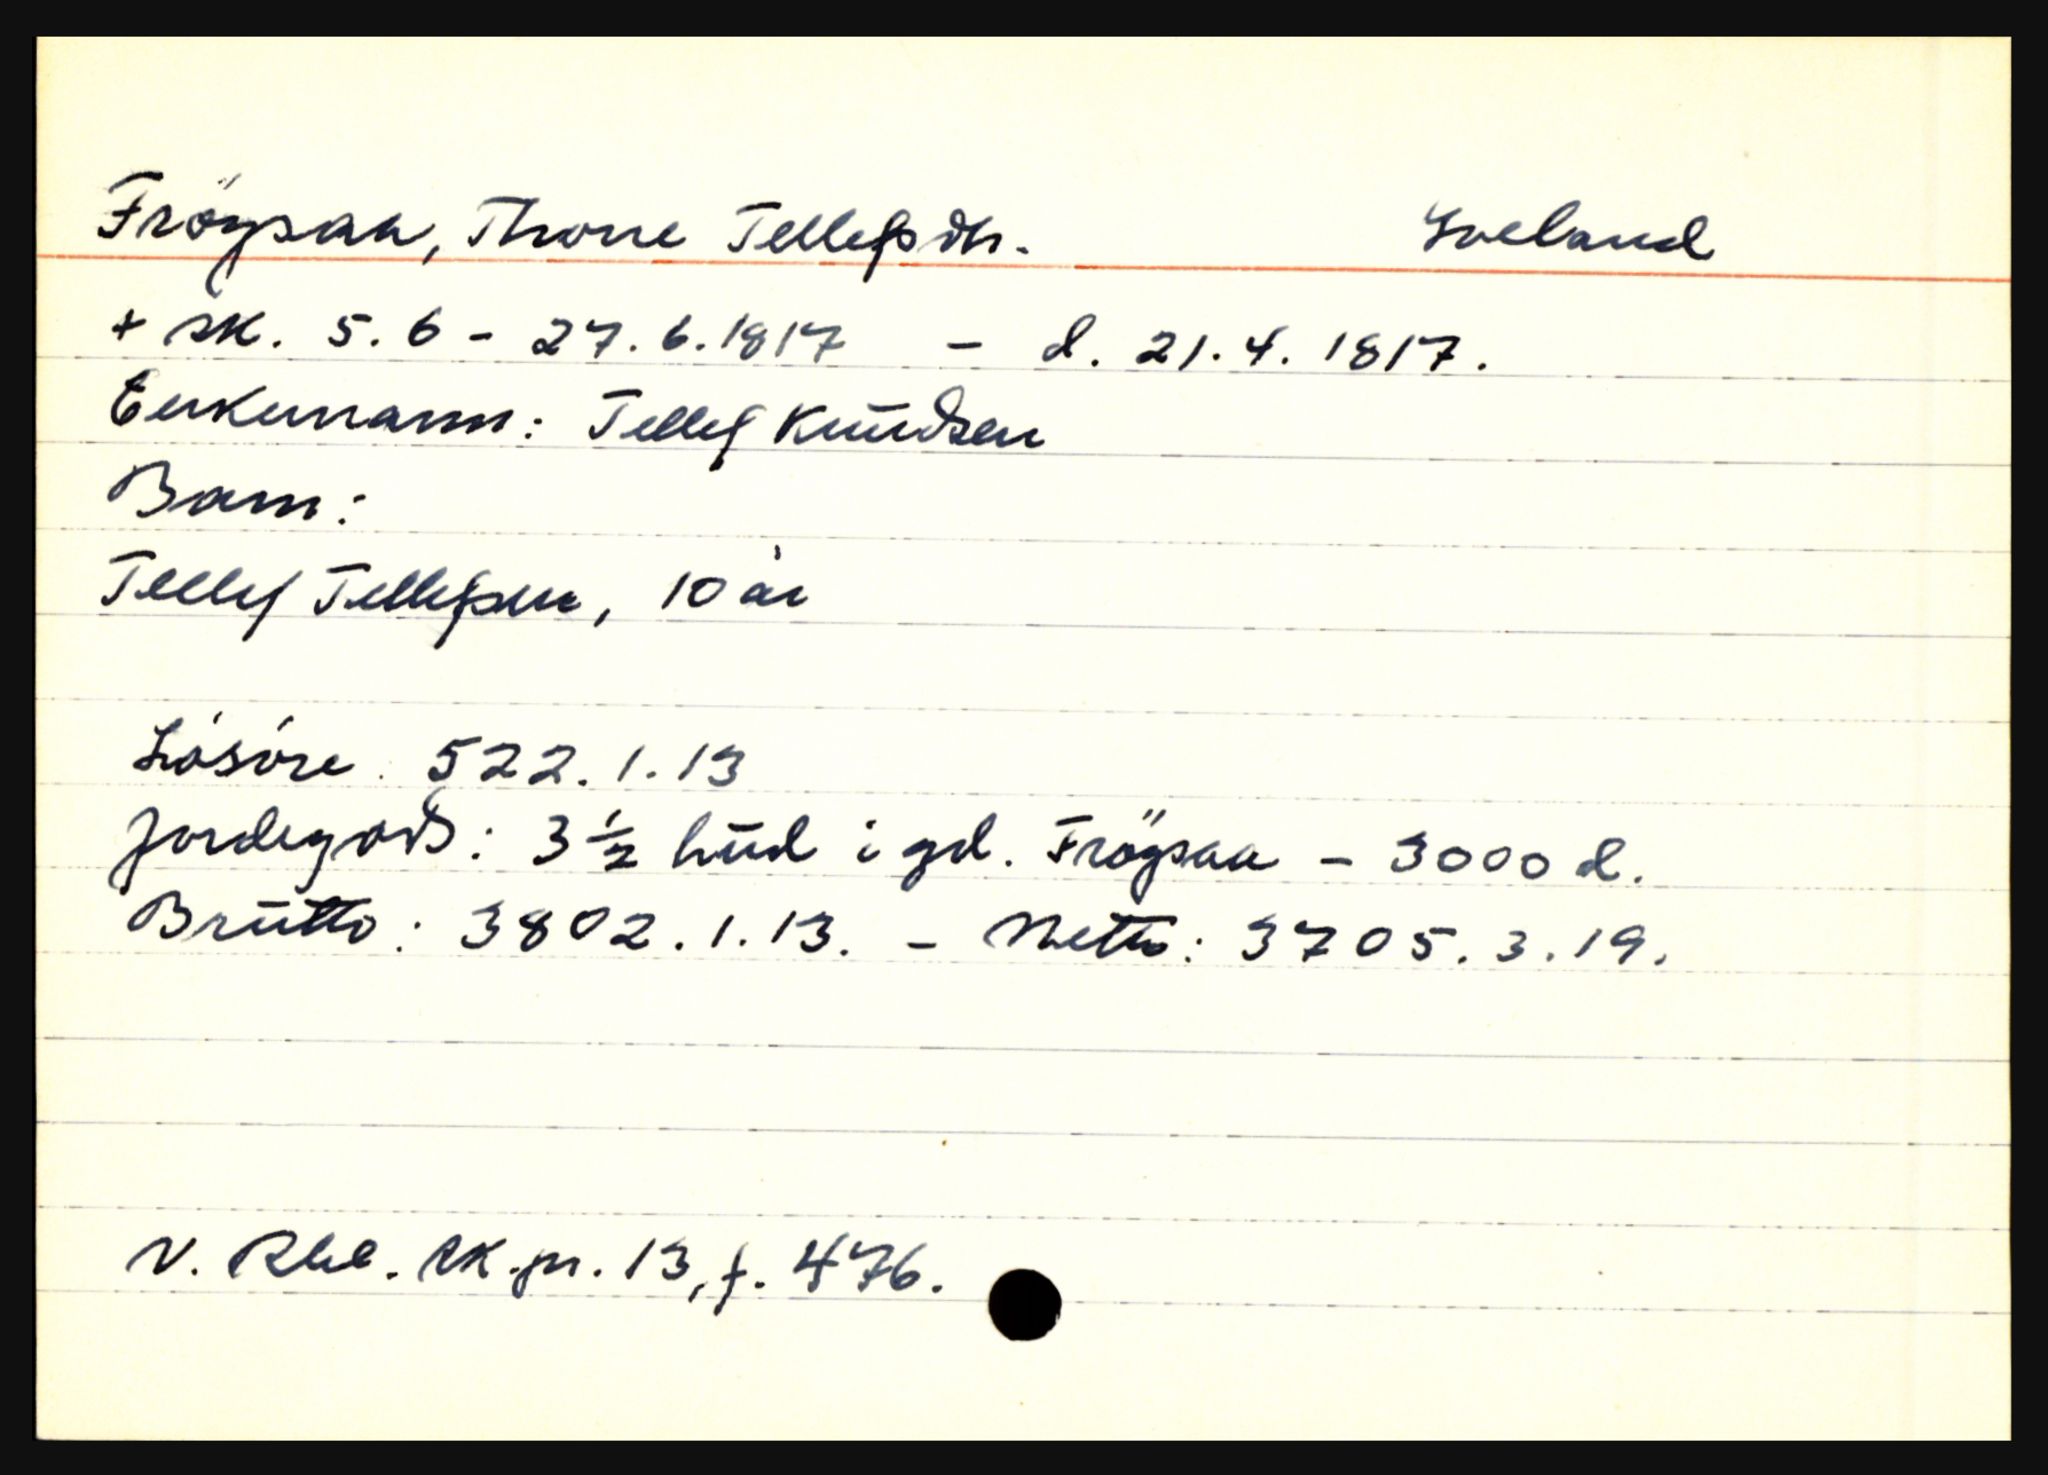 Fröysaa, Thorre Tellefsdtr. Iveland
+ sk. 5.6 - 27.6.1817 - d. 21.4.1817.
Enkemann: Tellef Knudsen
Barn:
Tellef Tellefsen, 10 år
Lósóre 522.1.13
Jordegods: 3 1/2 hud i gd. Fröysaa - 3000 d.
Brutto: 3802.1.13. - Netto: 3705.3.19.
V. Rbl. sk.pr. 13, f. 476.